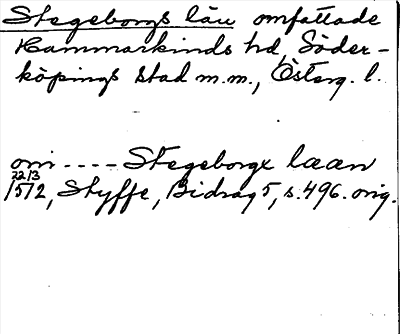 Stegeborgs län omfattade
Hammarkinds hd, Söder-
köpings stad m.m., Österg. l.
om ---- Stegeborgx lææn
22/3
1512, Styffe, Bidrag 5, s. 496. orig.